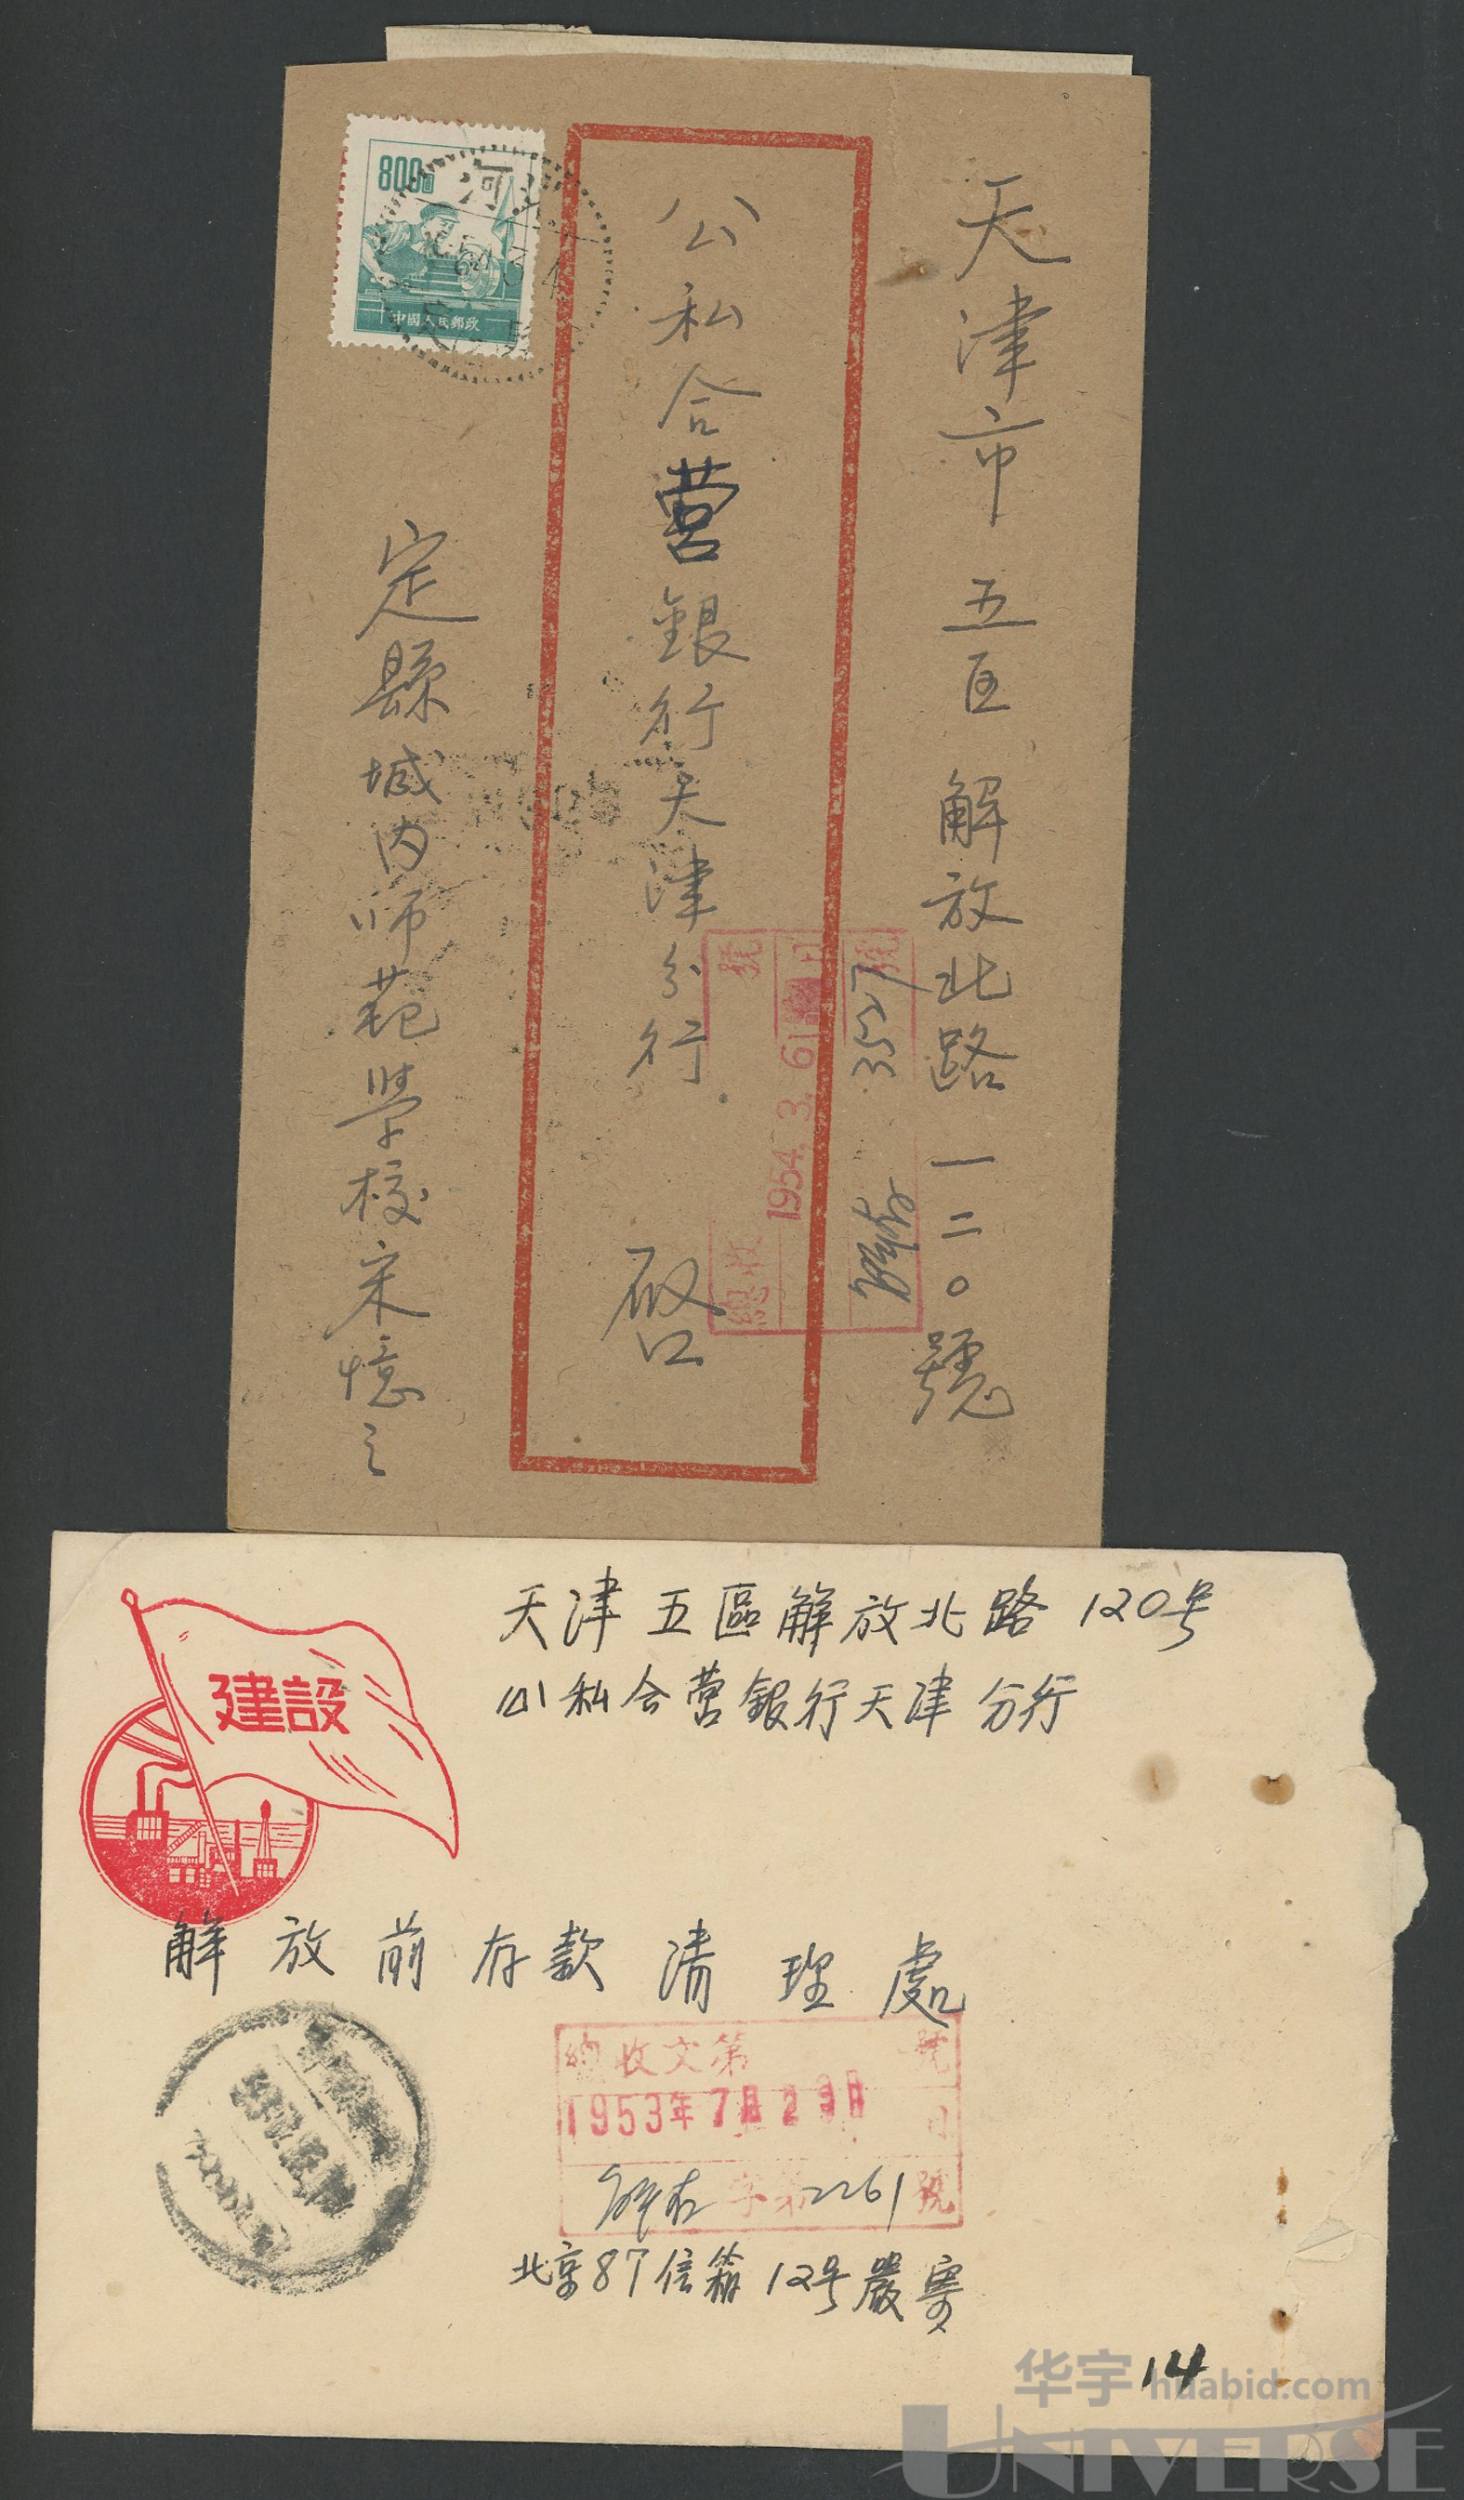 天津市 五区 解放北路 一二〇號
公私合营銀行天津分行 啟
定縣城内师范学校宋憶之
800圓
中國人民郵政
河北
號
號
1954. 3. 6
3527
總收
天津五區解放北路120号
公私合营銀行天津分行
建設
解放前存款清理處
總收文第 號
1953年7月23日 日
解存字第2261號
北京87信箱12号嚴寄
14
华宇 huabid.com
UNIVERSE